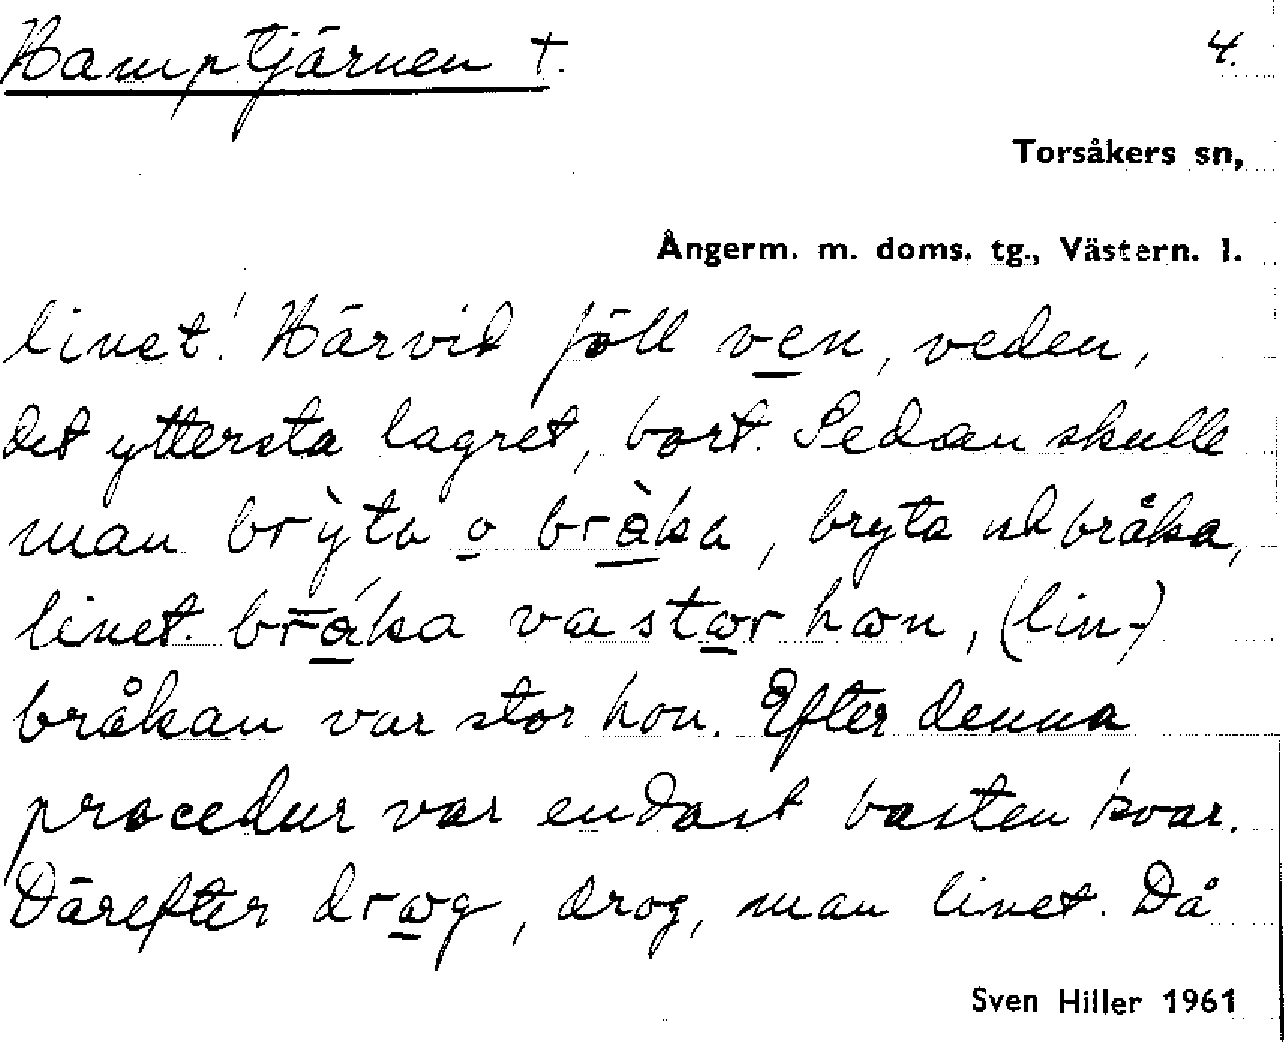 Hamptjärnen t. 4.
Torsåkers sn,
Ångerm. m. doms. tg., Västern. l.
linet! Härvid föll ven, veden,
det yttersta lagret, bort. Sedan skulle
man brỳta o brà̊ka, bryta och bråka,
linet. brá̊ka va stωr hωn, (lin-)
bråkan var stor hon. Efter denna
procedur var endast basten kvar.
Därefter drωg, drog, man linet. Då
Sven Hiller 1961